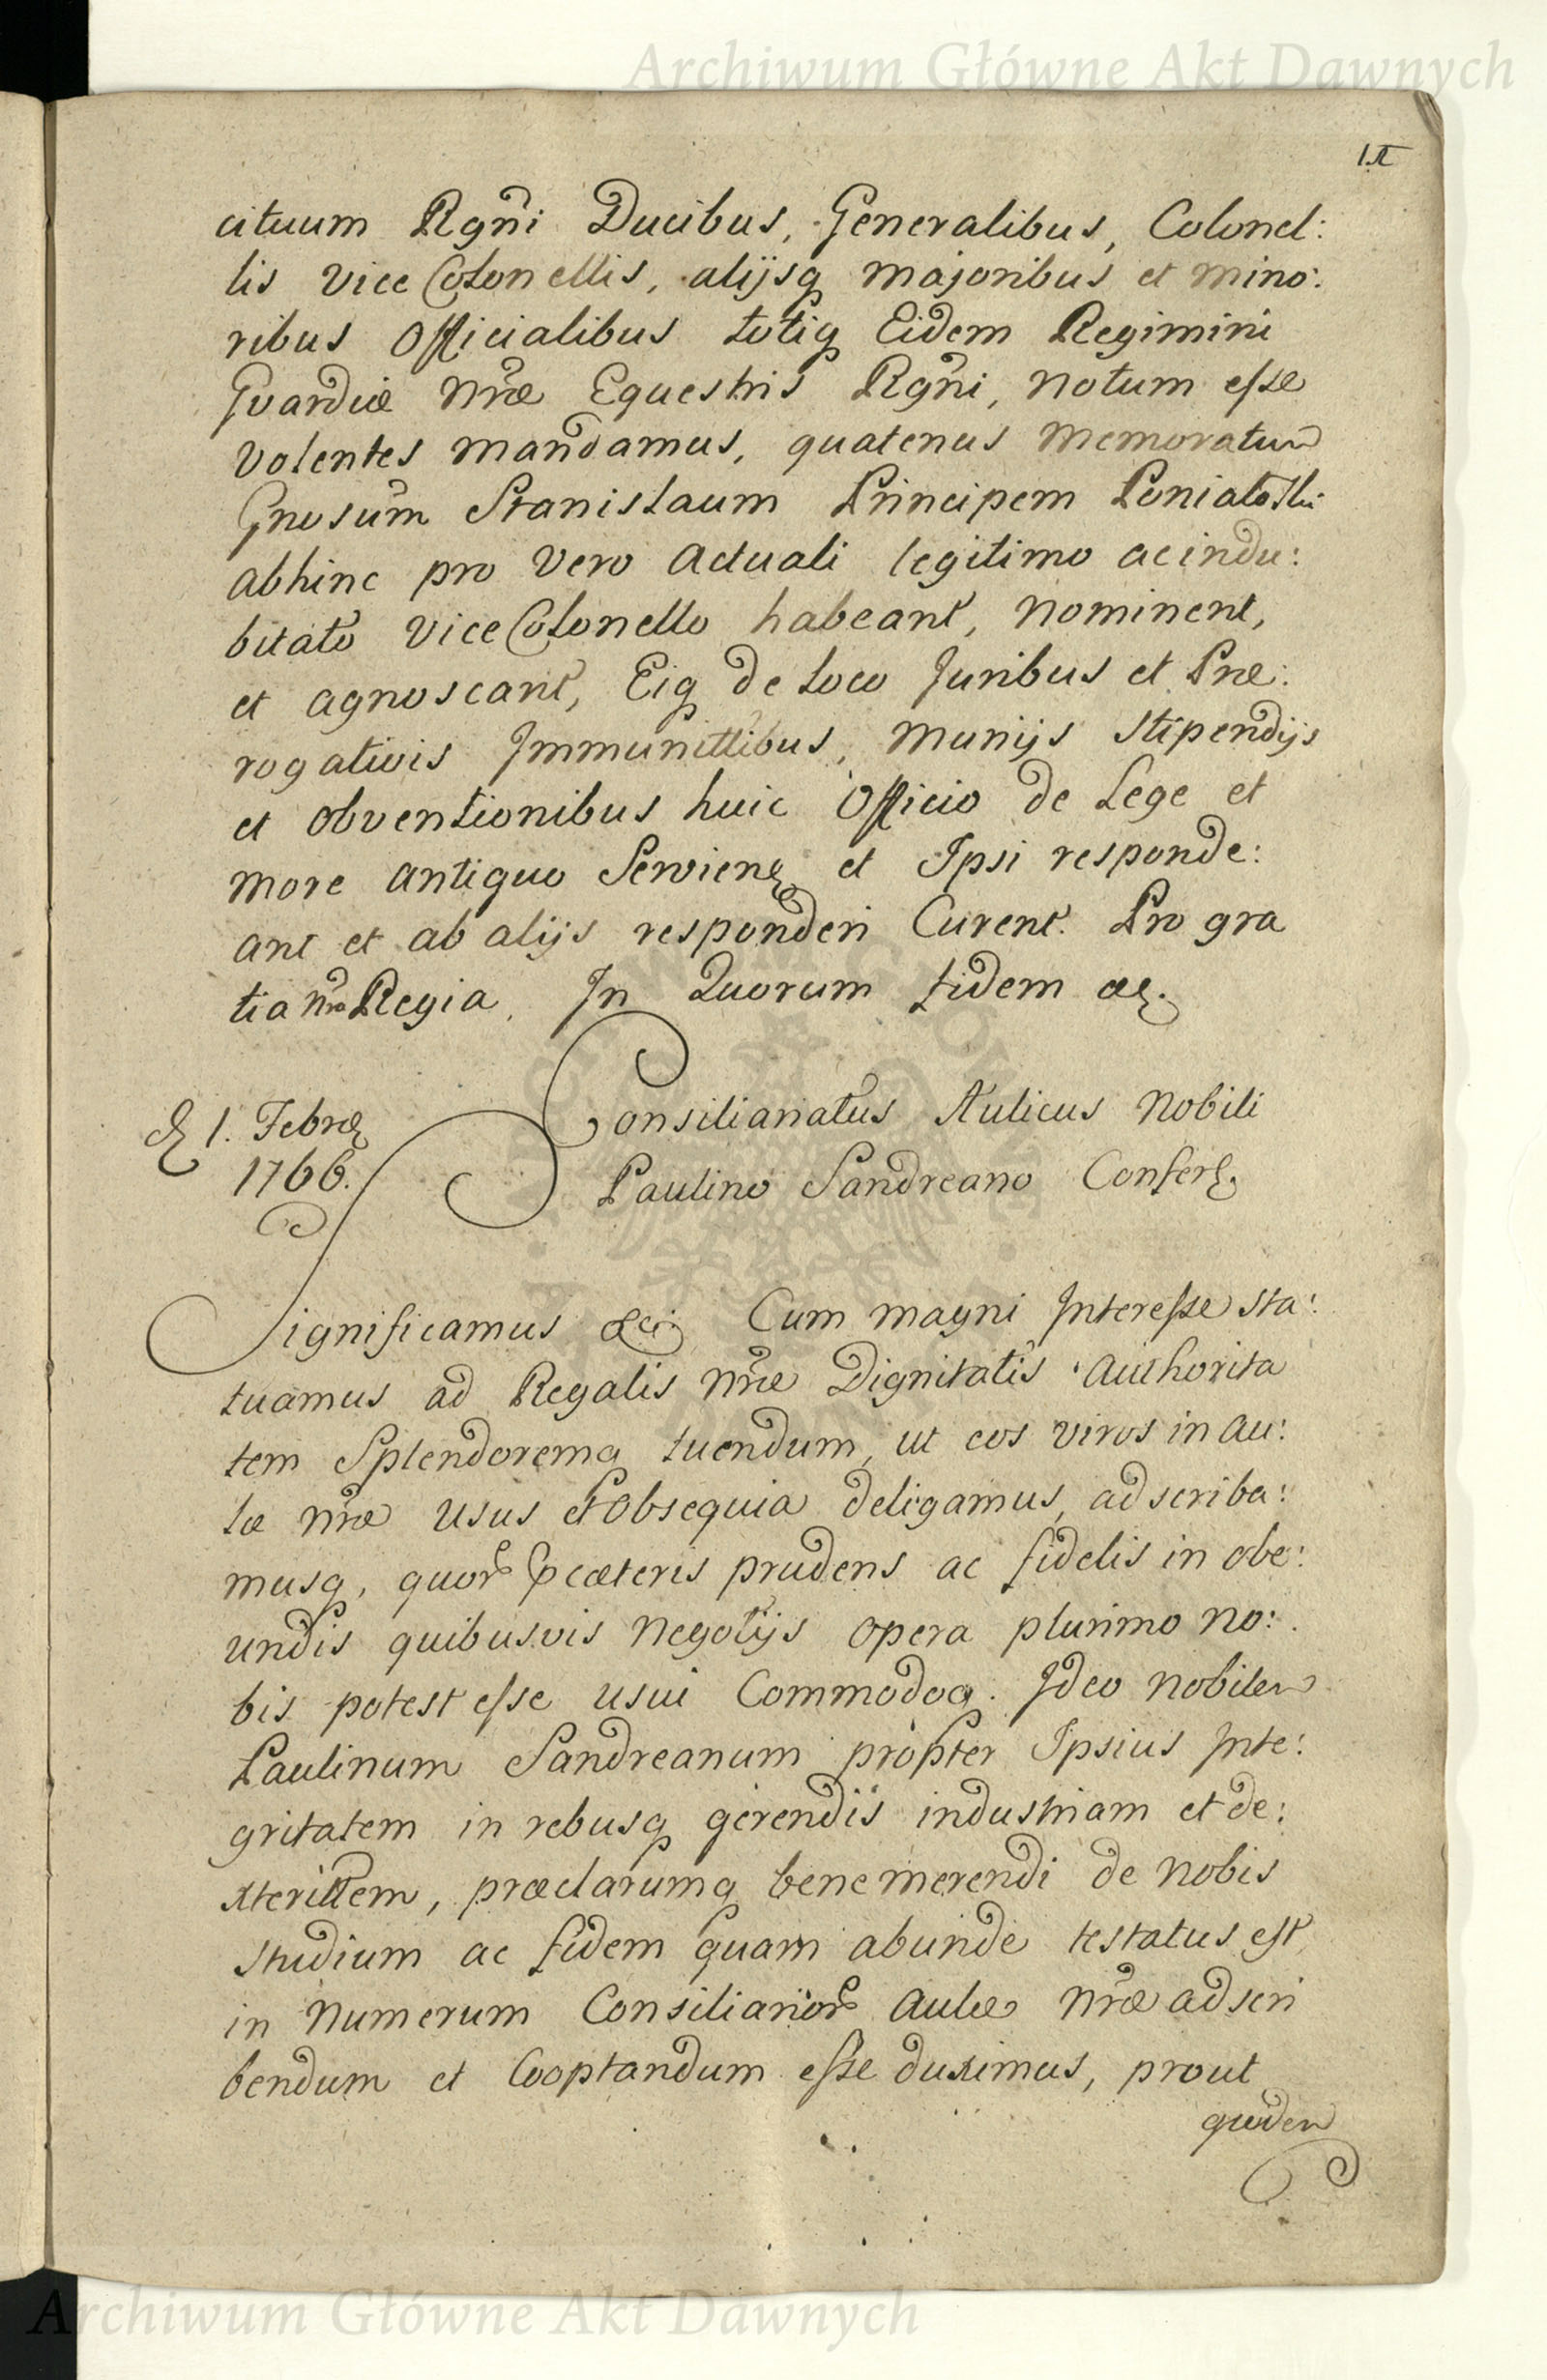 Archiwum Główne Akt Dawnych
cituum Rgni Ducibus, Generalibus, Colonel:
lis Vice Colonellis, alijsq majoribus et mino:
ribus Officialibus totiq Eidem Regimini
Gvardiæ Nræ Equestris Rgni, notum esse
Volentes mandamus, quatenus memoratum
Gnosum Stanislaum Principem Poniatoski
abhinc pro Vero Actuali legitimo ac indu:
bitato Vice Colonello habeant, nominent,
et agnoscant, Eiq de Loco Juribus et Præ:
rogativis Immunittibus, Munijs Stipendijs
et obventionibus huic Officio de Lege et
more antiquo Servien et Ipsi responde:
ant et ab alijs responderi Curent. Pro gra
tia Nra Regia. In Quorum fidem &.
1. Febr
1766.
Consiliariatus Aulicus Nobili
Paulino Sandreano Confer.
Significamus &c: Cum magni Interesse sta:
tuamus ad Regalis Nræ Dignitatis Authorita
tem Splendoremq tuendum, ut eos viros in Au:
læ Nræ Usus et Obsequia deligamus, adscriba:
musq, quor cæteris prudens ac fidelis in obe:
undis quibusvis Negotijs opera plurimo no:
bis potest esse usui Commodoq. Ideo Nobilem
Paulinum Sandreanum propter Ipsius Inte:
gritatem in rebusq gerendis industriam et de:
xterittem, præclarumq bene merendi de Nobis
studium ac fidem quam abunde testatus est,
in Numerum Consiliarior Aulæ Nræ adscri
bendum et Cooptandum esse duximus, prout
quidem
Archiwum Główne Akt Dawnych